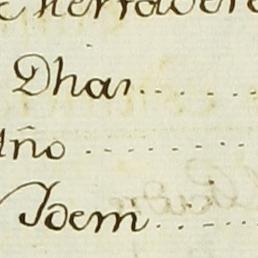 Dhas.....
Año ..........
Idem.......